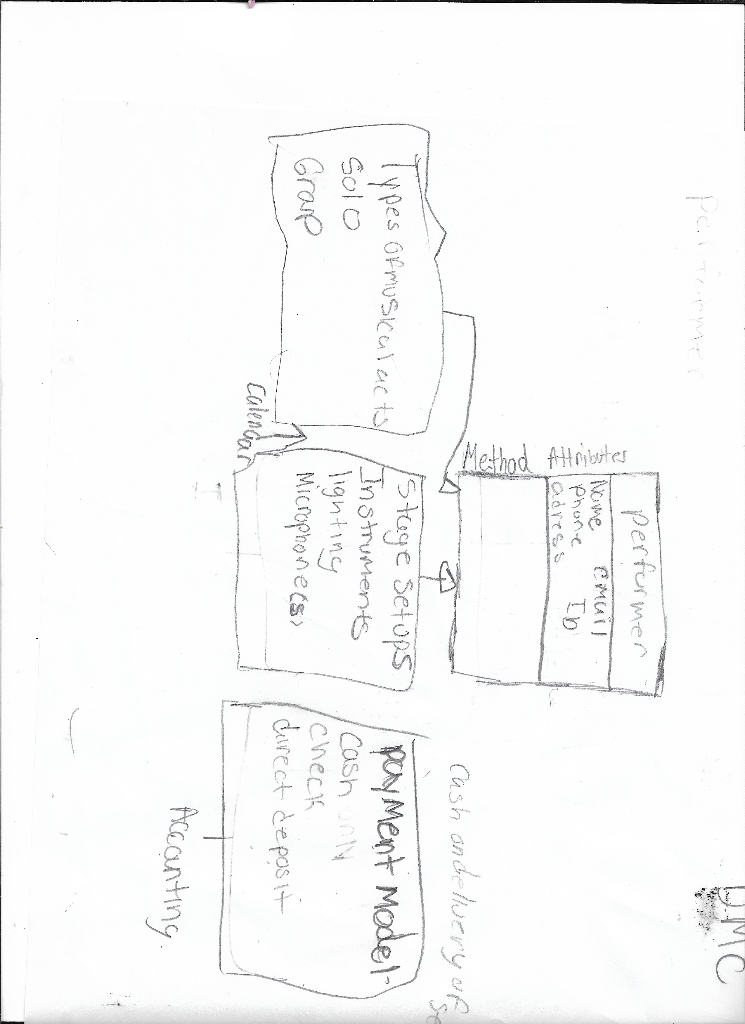 performer
performer
Attributes
Name email
phone ID
adress
Method
Cash on delivery of
Types of musical acts
Solo
Group
Stage setups
Instruments
lighting
Microphone(s)
payment Model
Cash only
check
direct deposit
Calendar
Accounting